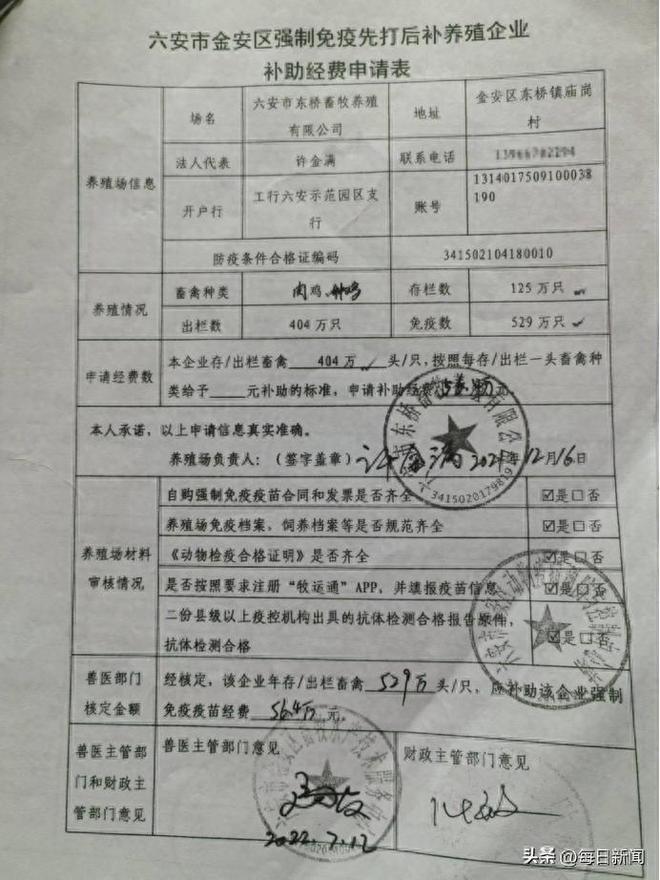 六安市金安区强制免疫先打后补养殖企业
补助经费申请表
养殖场信息
场名
六安市东桥畜牧养殖
有限公司
地址
金安区东桥镇庙岗
村
法人代表
许金满
联系电话
开户行
工行六安示范园区支
行
账号
1314017509100038
190
防疫条件合格证编码
341502104180010
养殖情况
畜禽种类
肉鸡、种鸡
存栏数
125 万只
出栏数
404 万只
免疫数
529 万只
申请经费数
本企业存/出栏畜禽 404 万 头/只，按照每存/出栏一头畜禽种
类给予____元补助的标准，申请补助经费 元。
本人承诺，以上申请信息真实准确。
养殖场负责人：（签字盖章）许金满 2021年12月16日
3415020179819
养殖场材料
审核情况
自购强制免疫疫苗合同和发票是否齐全
☑是☐否
养殖场免疫档案，饲养档案等是否规范齐全
☑是☐否
《动物检疫合格证明》是否齐全
☑是☐否
是否按照要求注册“牧运通”APP，并填报疫苗信息
☑是☐否
二份县级以上疫控机构出具的抗体检测合格报告原件，
抗体检测合格
☑是☐否
兽医部门
核定金额
经核定，该企业年存/出栏畜禽 529万 头/只，应补助该企业强制
免疫疫苗经费 56.4万 元。
兽医主管部
门和财政主
管部门意见
兽医主管部门意见
2022.7.12
财政主管部门意见
头条 @每日新闻